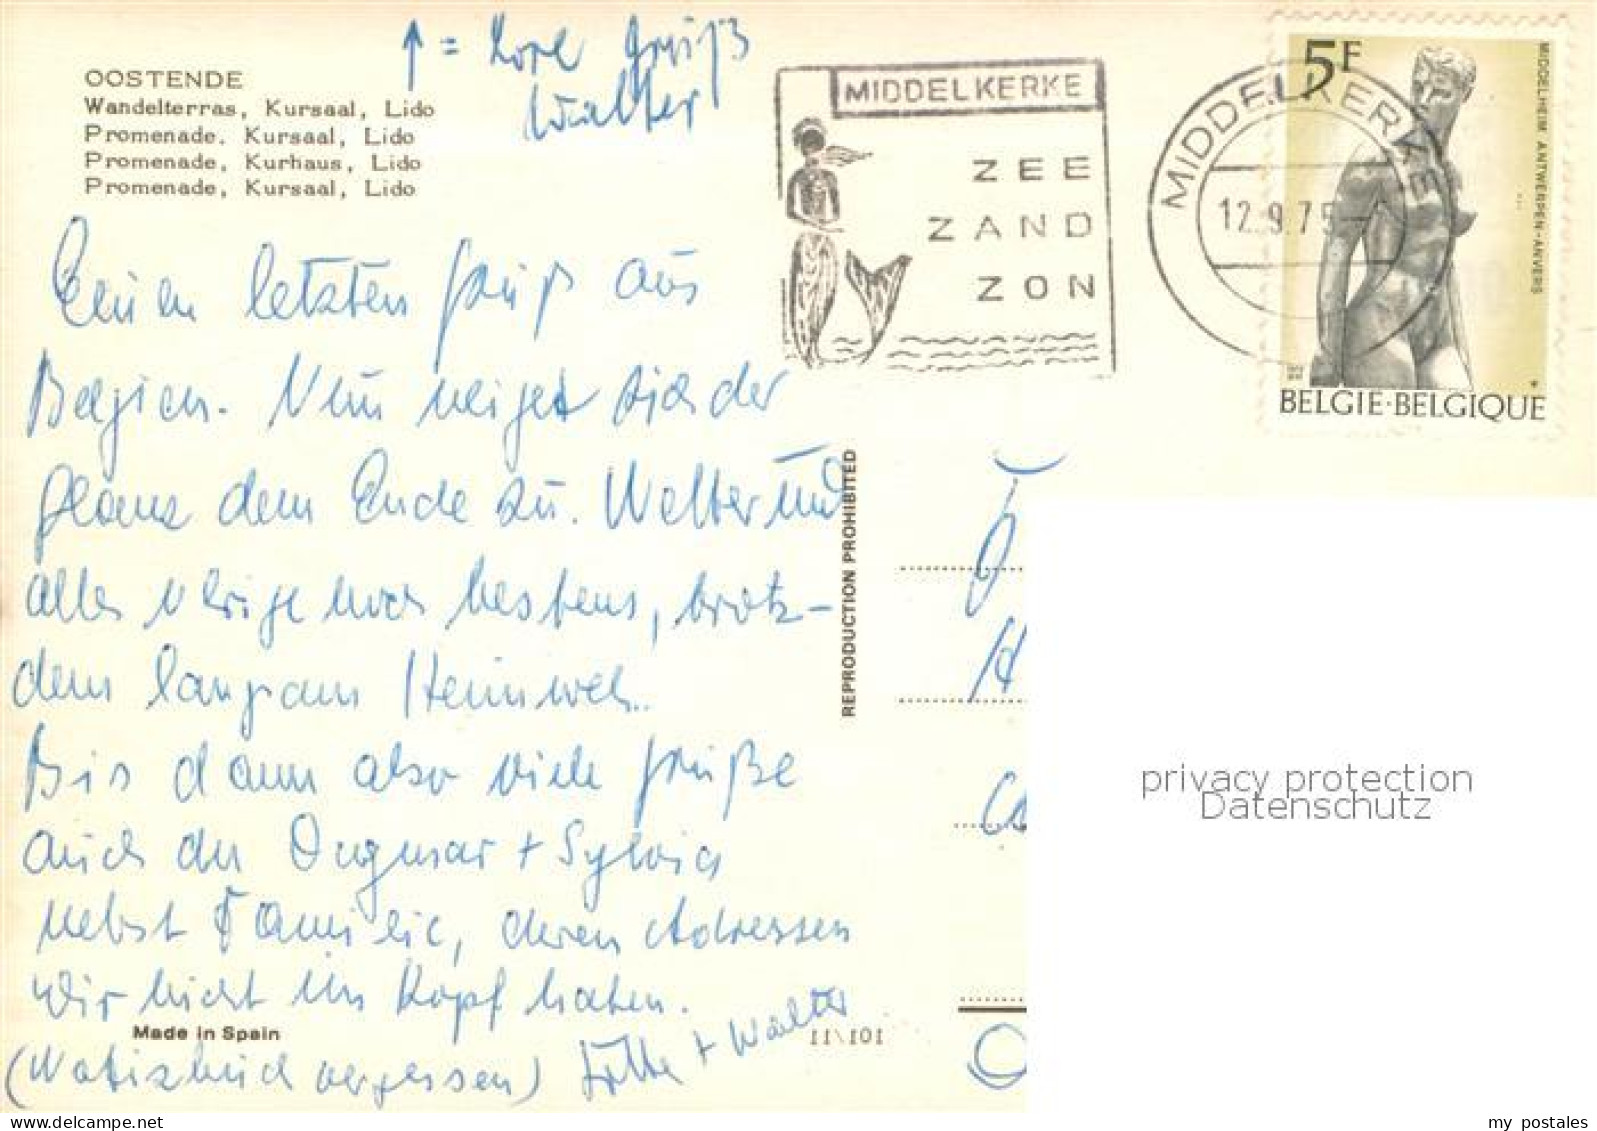 ↑ = Gruß
Walter
OOSTENDE
Wandelterras, Kursaal, Lido
Promenade, Kursaal, Lido
Promenade, Kurhaus, Lido
Promenade, Kursaal, Lido
MIDDELKERKE
ZEE
ZAND
ZON
MIDDELKERKE
12.9.75
5F
MIDDELHEIM ANTWERPEN-ANVERS
BELGIE·BELGIQUE
Einen letzten Gruß aus
Belgien. Nun neiget sich der
Glanz dem Ende zu. Wetter und
alles übrige noch bestens, trotz-
dem langsam Heimweh..
Bis dann also viele Grüße
auch an Dagmar + Sylvia
nebst Familie, deren Adressen
wir nicht im Kopf haben.
(Notizbuch vergessen) + Walter
Made in Spain
11/101
REPRODUCTION PROHIBITED
privacy protection
Datenschutz
my_postales
https://www.delcampe.net